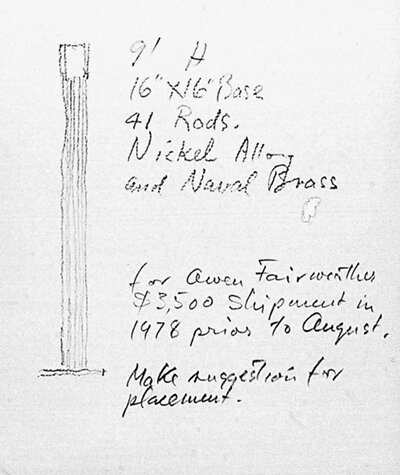 9' H
16" x 16" Base
41 Rods.
Nickel Alloy
and Naval Brass
B
for Owen Fairweather
$3,500 Shipment in
1978 prior to August.
Make suggestion for
placement.